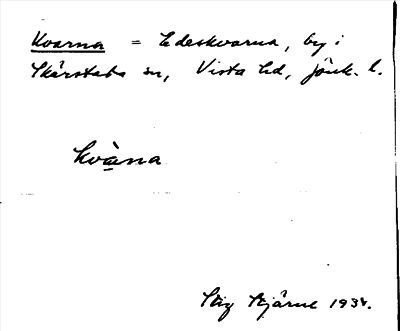 Kvarna = Edeskvarna, by i
Skärstads sn, Vista hd, Jönk. l.
kvàna
Stig Bjärne 193